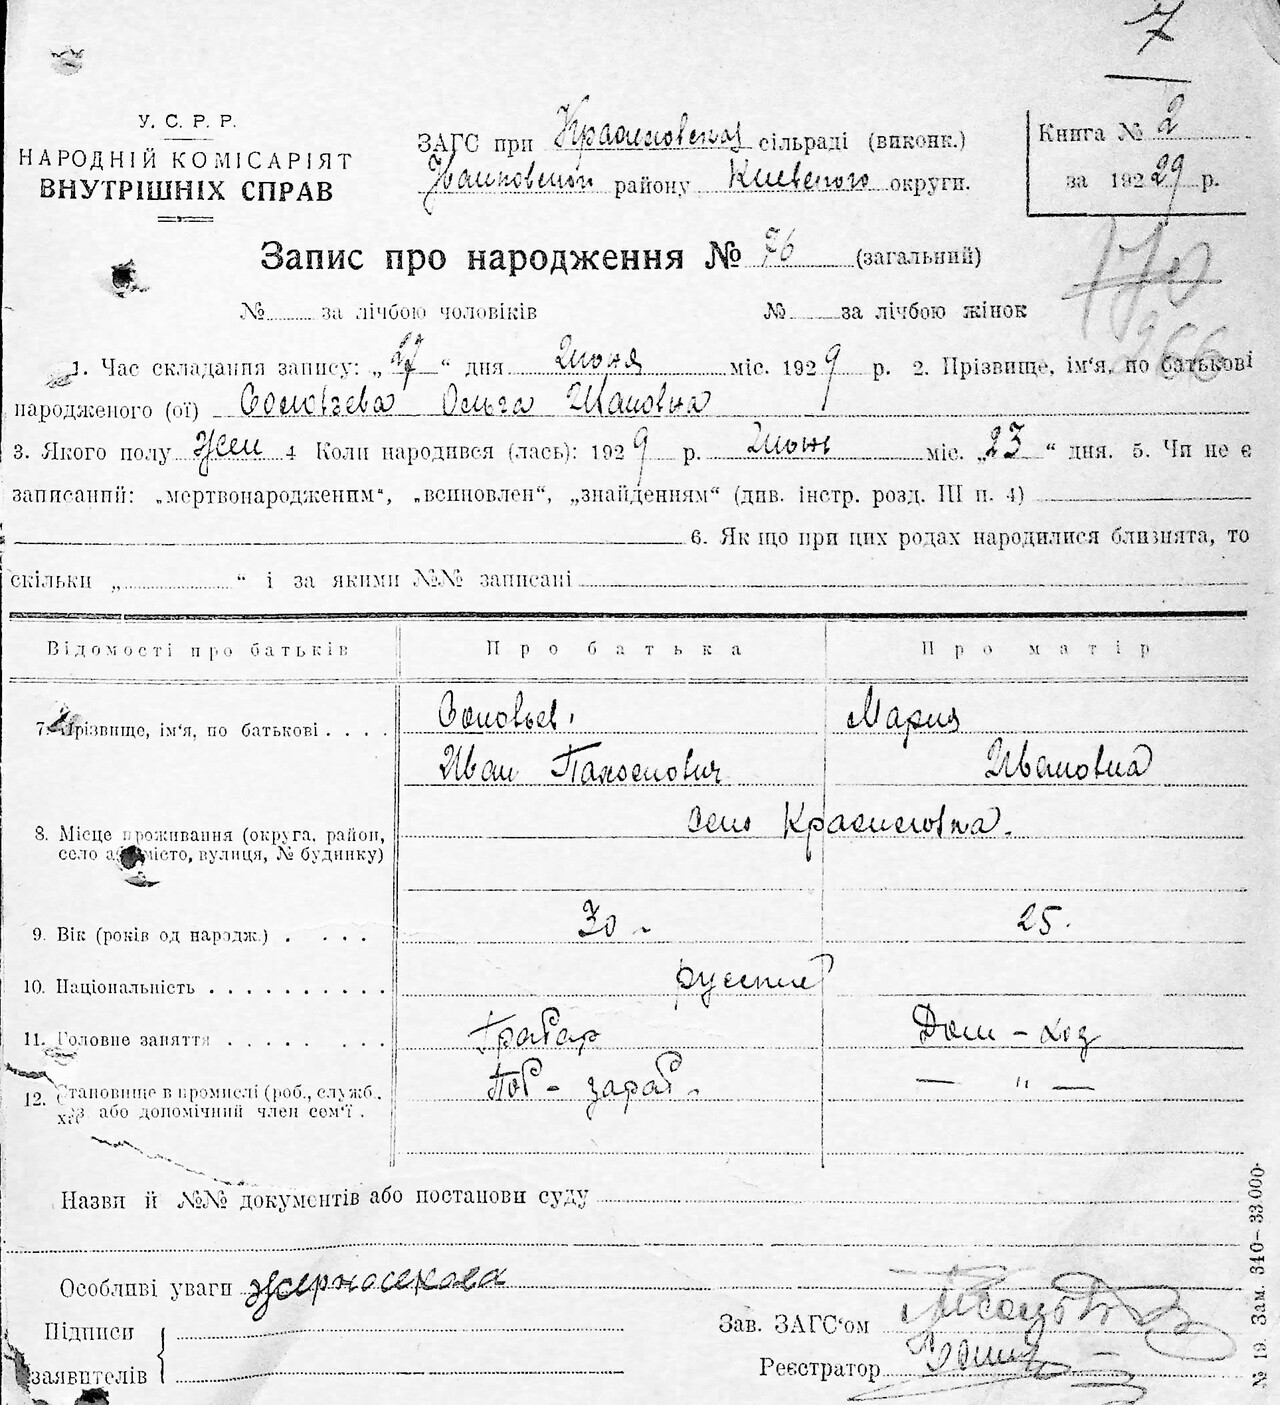 7
У. С. Р. Р.
НАРОДНІЙ КОМІСАРІЯТ
ВНУТРІШНІХ СПРАВ
ЗАГС при сільраді (виконк.)
району Киевского округи.
Книга № 2
за 192 29 р.
Запис про народження № 76 (загальний)
№ за лічбою чоловіків № за лічбою жінок
266
1. Час складання запису: „ 27 “ дня Июня міс. 192 9 р. 2. Прізвище, ім'я, по батькові
народженого (ої) Соловьева Ольга Ивановна
3. Якого полу жен 4 Коли народився (лась): 192 9 р. Июня міс. „ 23 “ дня. 5. Чи не є
записаний: „мертвонародженим“, „всиновлен“, „знайденням“ (див. інстр. розд. III п. 4)
6. Як що при цих родах народилися близнята, то
скільки „ “ і за якими №№ записані
Відомості про батьків Про батька Про матір
7. Прізвище, ім'я, по батькові . . . . Соловьев, Мария
Иван Ивановна
8. Місце проживання (округа, район, село або місто, вулиця, № будинку) село Красиловка.
9. Вік (років од народж.) . . . . 30 25.
10. Національність . . . . . . . . . . русские
11. Головне заняття . . . . . . . . Грабар Дом - хоз
12. Становище в промислі (роб., служб., хаз або допомічний член сем'ї . Поб - зараб. — " —
Назви й №№ документів або постанови суду
Особливі уваги Жерносекова
Підписи
заявителів
Зав. ЗАГС‘ом
Реєстратор
№ 19. Зам. 340– 33.000·